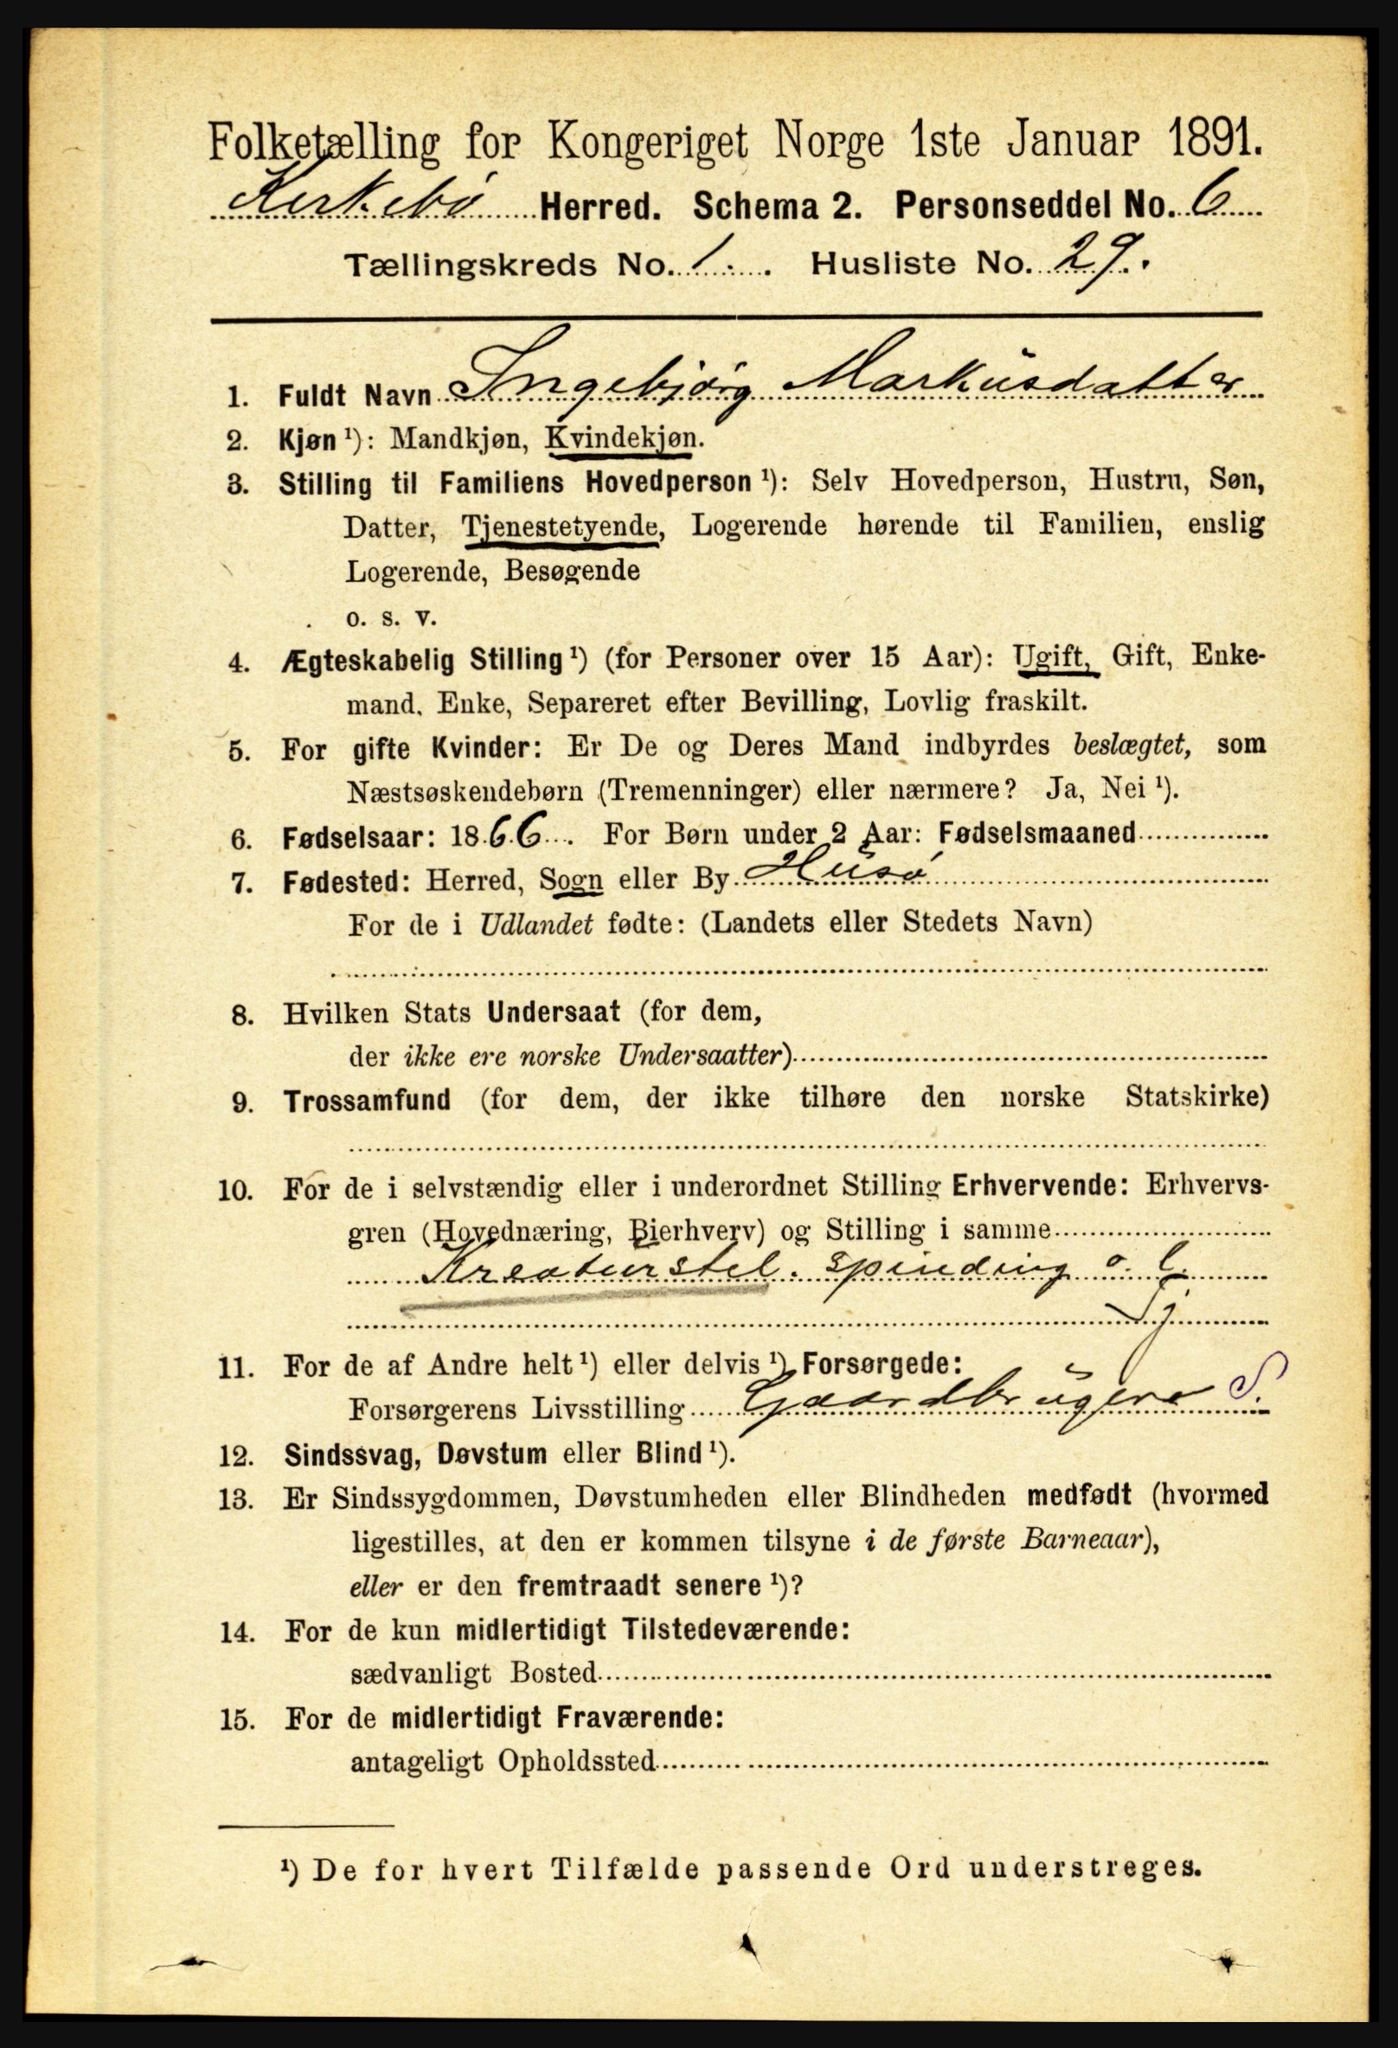 Folketælling for Kongeriget Norge 1ste Januar 1891.
Kirkebø Herred. Schema 2. Personseddel No. 6
Tællingskreds No. 1. Husliste No. 29.
1. Fuldt Navn Ingebjørg Markusdatter
2. Kjøn ¹): Mandkjøn, Kvindekjøn.
3. Stilling til Familiens Hovedperson ¹): Selv Hovedperson, Hustru, Søn,
Datter, Tjenestetyende, Logerende hørende til Familien, enslig
Logerende, Besøgende
o. s. v.
4. Ægteskabelig Stilling ¹) (for Personer over 15 Aar): Ugift, Gift, Enke-
mand, Enke, Separeret efter Bevilling, Lovlig fraskilt.
5. For gifte Kvinder: Er De og Deres Mand indbyrdes beslægtet, som
Næstsøskendebørn (Tremenninger) eller nærmere? Ja, Nei ¹).
6. Fødselsaar: 1866. For Børn under 2 Aar: Fødselsmaaned
7. Fødested: Herred, Sogn eller By Husø
For de i Udlandet fødte: (Landets eller Stedets Navn)
8. Hvilken Stats Undersaat (for dem,
der ikke ere norske Undersaatter)
9. Trossamfund (for dem, der ikke tilhøre den norske Statskirke)
10. For de i selvstændig eller i underordnet Stilling Erhvervende: Erhvervs-
gren (Hovednæring, Bierhverv) og Stilling i samme
Kreaturstel. spinding o. l.
Tj
11. For de af Andre helt ¹) eller delvis ¹) Forsørgede:
Forsørgerens Livsstilling Gaardbruger S.
12. Sindssvag, Døvstum eller Blind ¹).
13. Er Sindssygdommen, Døvstumheden eller Blindheden medfødt (hvormed
ligestilles, at den er kommen tilsyne i de første Barneaar),
eller er den fremtraadt senere ¹)?
14. For de kun midlertidigt Tilstedeværende:
sædvanligt Bosted
15. For de midlertidigt Fraværende:
antageligt Opholdssted
¹) De for hvert Tilfælde passende Ord understreges.